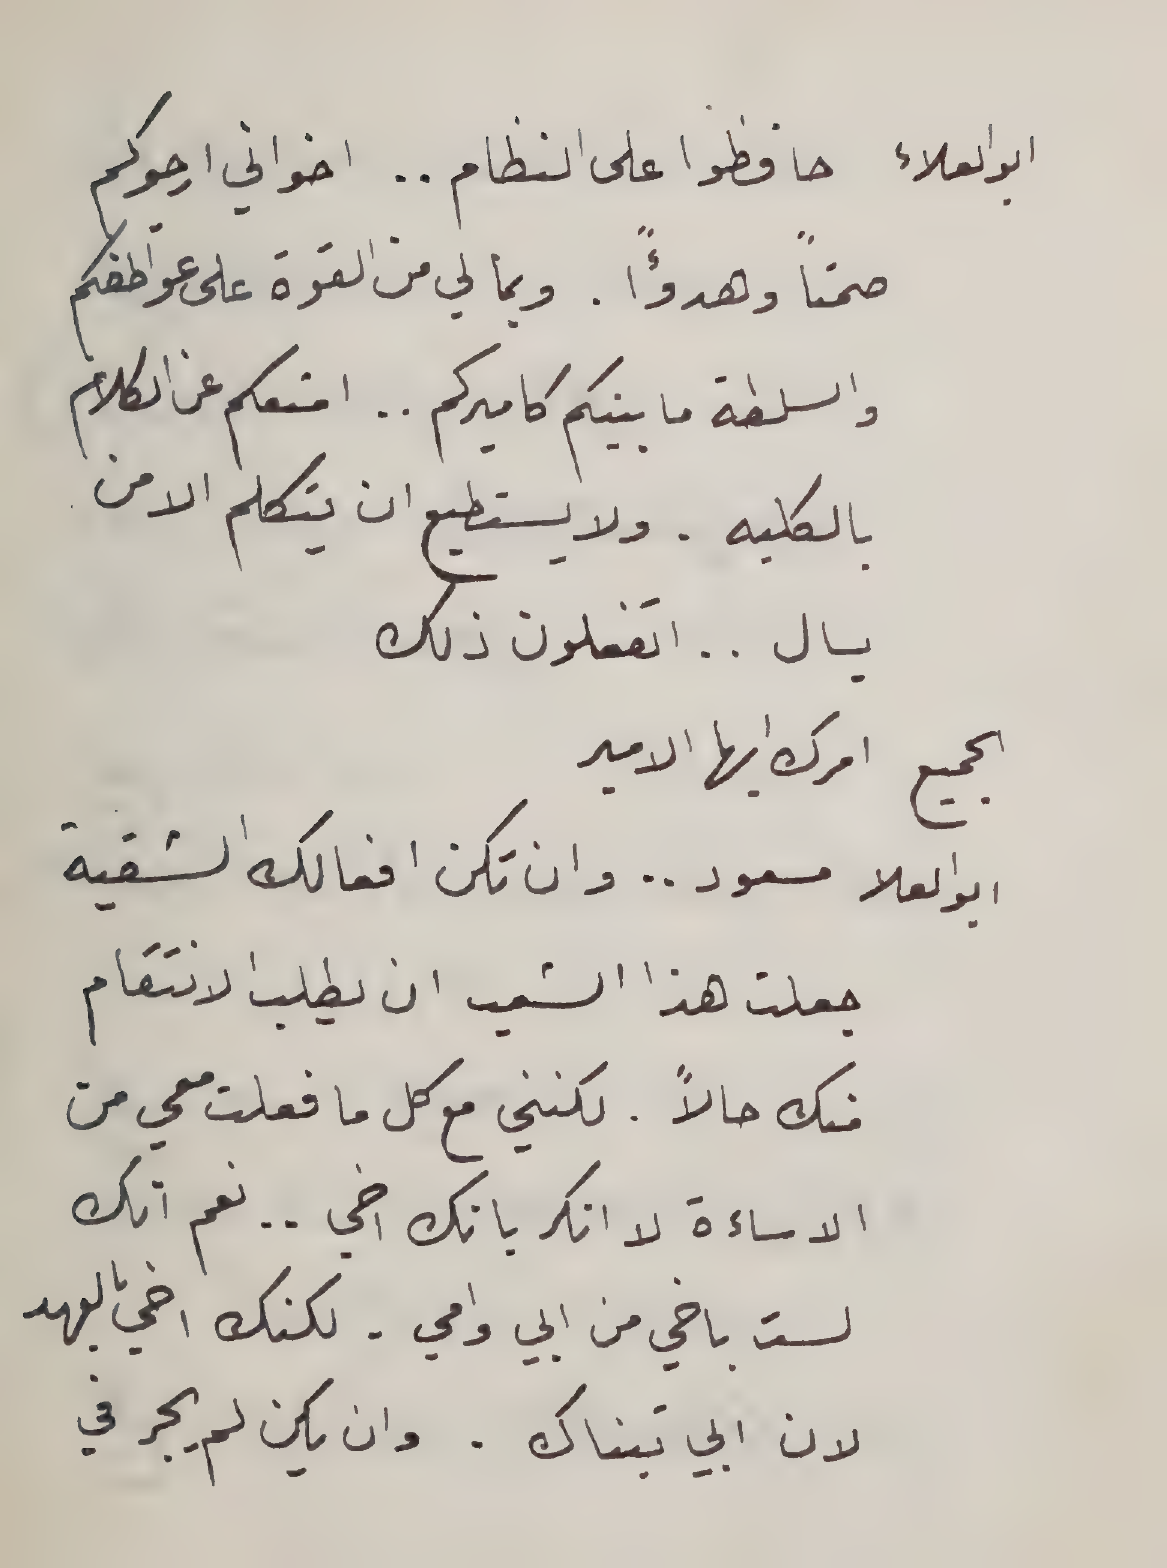 ابوالعلاء حافظوا على النظام .. اخواني ارجوكم
صمتاً وهدوءًا . وبمالي من القوة على عواطفكم
والسلطة مابينكم كاميركم .. امنعكم عن الكلام
بالكليه . ولايستطيع ان يتكلم الا من
يسال .. اتفعلون ذلك
الجميع امرك ايها الامير
ابوالعلا مسعود .. وان تكن افعالك الشقية
جعلت هذا الشعب ان يطلب الانتقام
منك حالاً . لكنني مع كل ما فعلت معي من
الاساءة لا انكر بانك اخي .. نعم انك
لست باخي من ابي وامي . لكنك اخي بالعهد
لان ابي تبناك . وان يكن لم يجر في